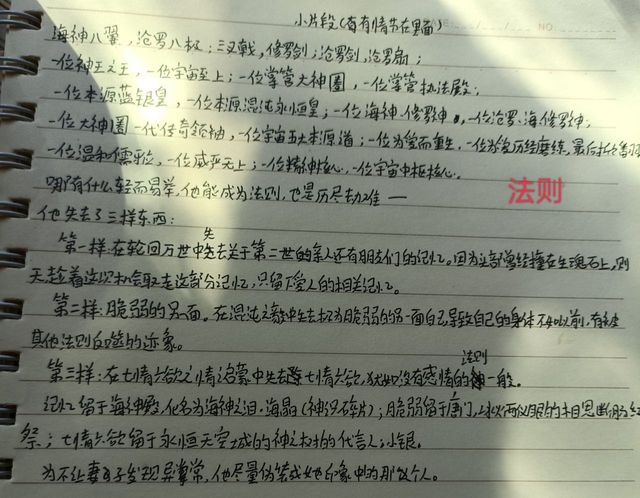 小片段(含有情节在里面)
NO.
海神八翼，沧罗八极；三叉戟，修罗剑；沧罗剑，沧罗扇；
一位神王之王，一位宇宙至上；一位掌管大神圈，一位掌管执法殿；
一位本源蓝银皇，一位本源混沌永恒皇；一位海神修罗神，一位沧罗海修罗神，
一位大神圈一代传奇领袖，一位宇宙五大本源道；一位为爱而重生，一位为爱历经磨练，最后
一位温和儒雅，一位威严无上；一位精神核心，一位宇宙中枢核心。
哪有什么轻而易举，他能成为法则，也是历尽劫难——
法则
他失去了三样东西：
第一样：在轮回万世中失去关于第二世的亲人还有朋友们的记忆。因为全部曾经撞在生魂石上，则
天趁着这次机会取走这部分记忆，只留下爱人的相关记忆。
第二样：脆弱的另一面。在混沌之教中失去极为脆弱的另一面自己导致自己的身体不如以前，有被
其他法则反噬的迹象。
第三样：在七情六欲之情启蒙中失去七情六欲，犹如没有感情的法则一般。
记忆留于海神殿，化名为海神之泪·海晶(神识碎片)；脆弱留于唐门 两仪眼的相思断肠红
祭；七情六欲留于永恒天空城的神之 的代言人：小银。
为不让妻子发现异常，他尽量伪装成她印象中的那个人。